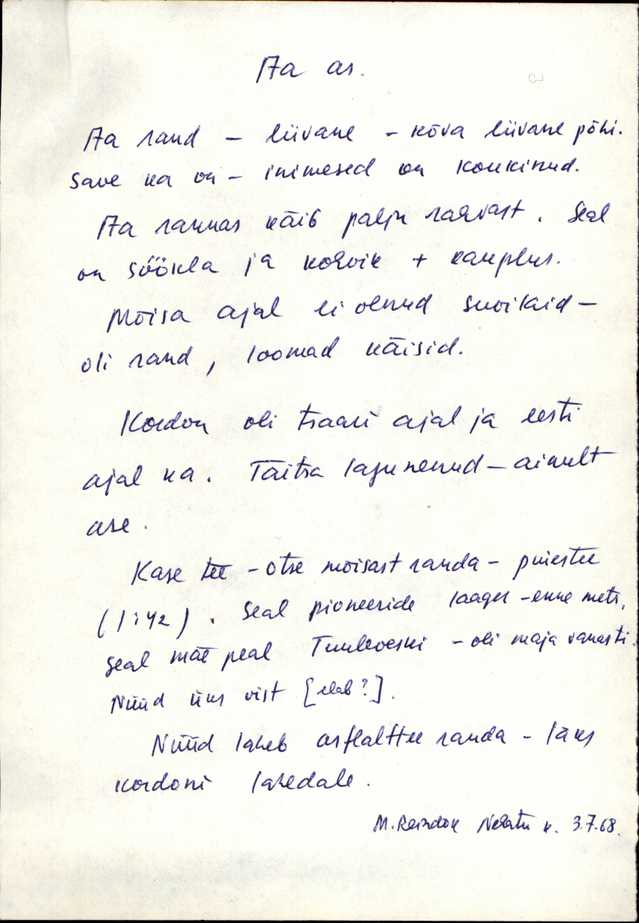 Aa as.
Aa rand – liivane – kõva liivane põhi.
Save ka on – inimesed on koukinud.
Aa rannas käib palju rahvast. Seal
on söökla ja kohvik + kauplus.
Mõisa ajal ei olnud suvikaid –
oli rand, loomad käisid.
Kordon oli tsaari ajal ja eesti
ajal ka. Täitsa lagunenud – ainult
ase.
Kase tee – otse mõisast randa – puiestee
(1:42). Seal pioneeride laager – enne mets,
seal mäe peal Tuuleveski – oli maja vanasti.
Nüüd üks vist [elab?].
Nüüd läheb asfalttee randa – läks
kordoni lähedale.
M. Reindok 3.7.68.